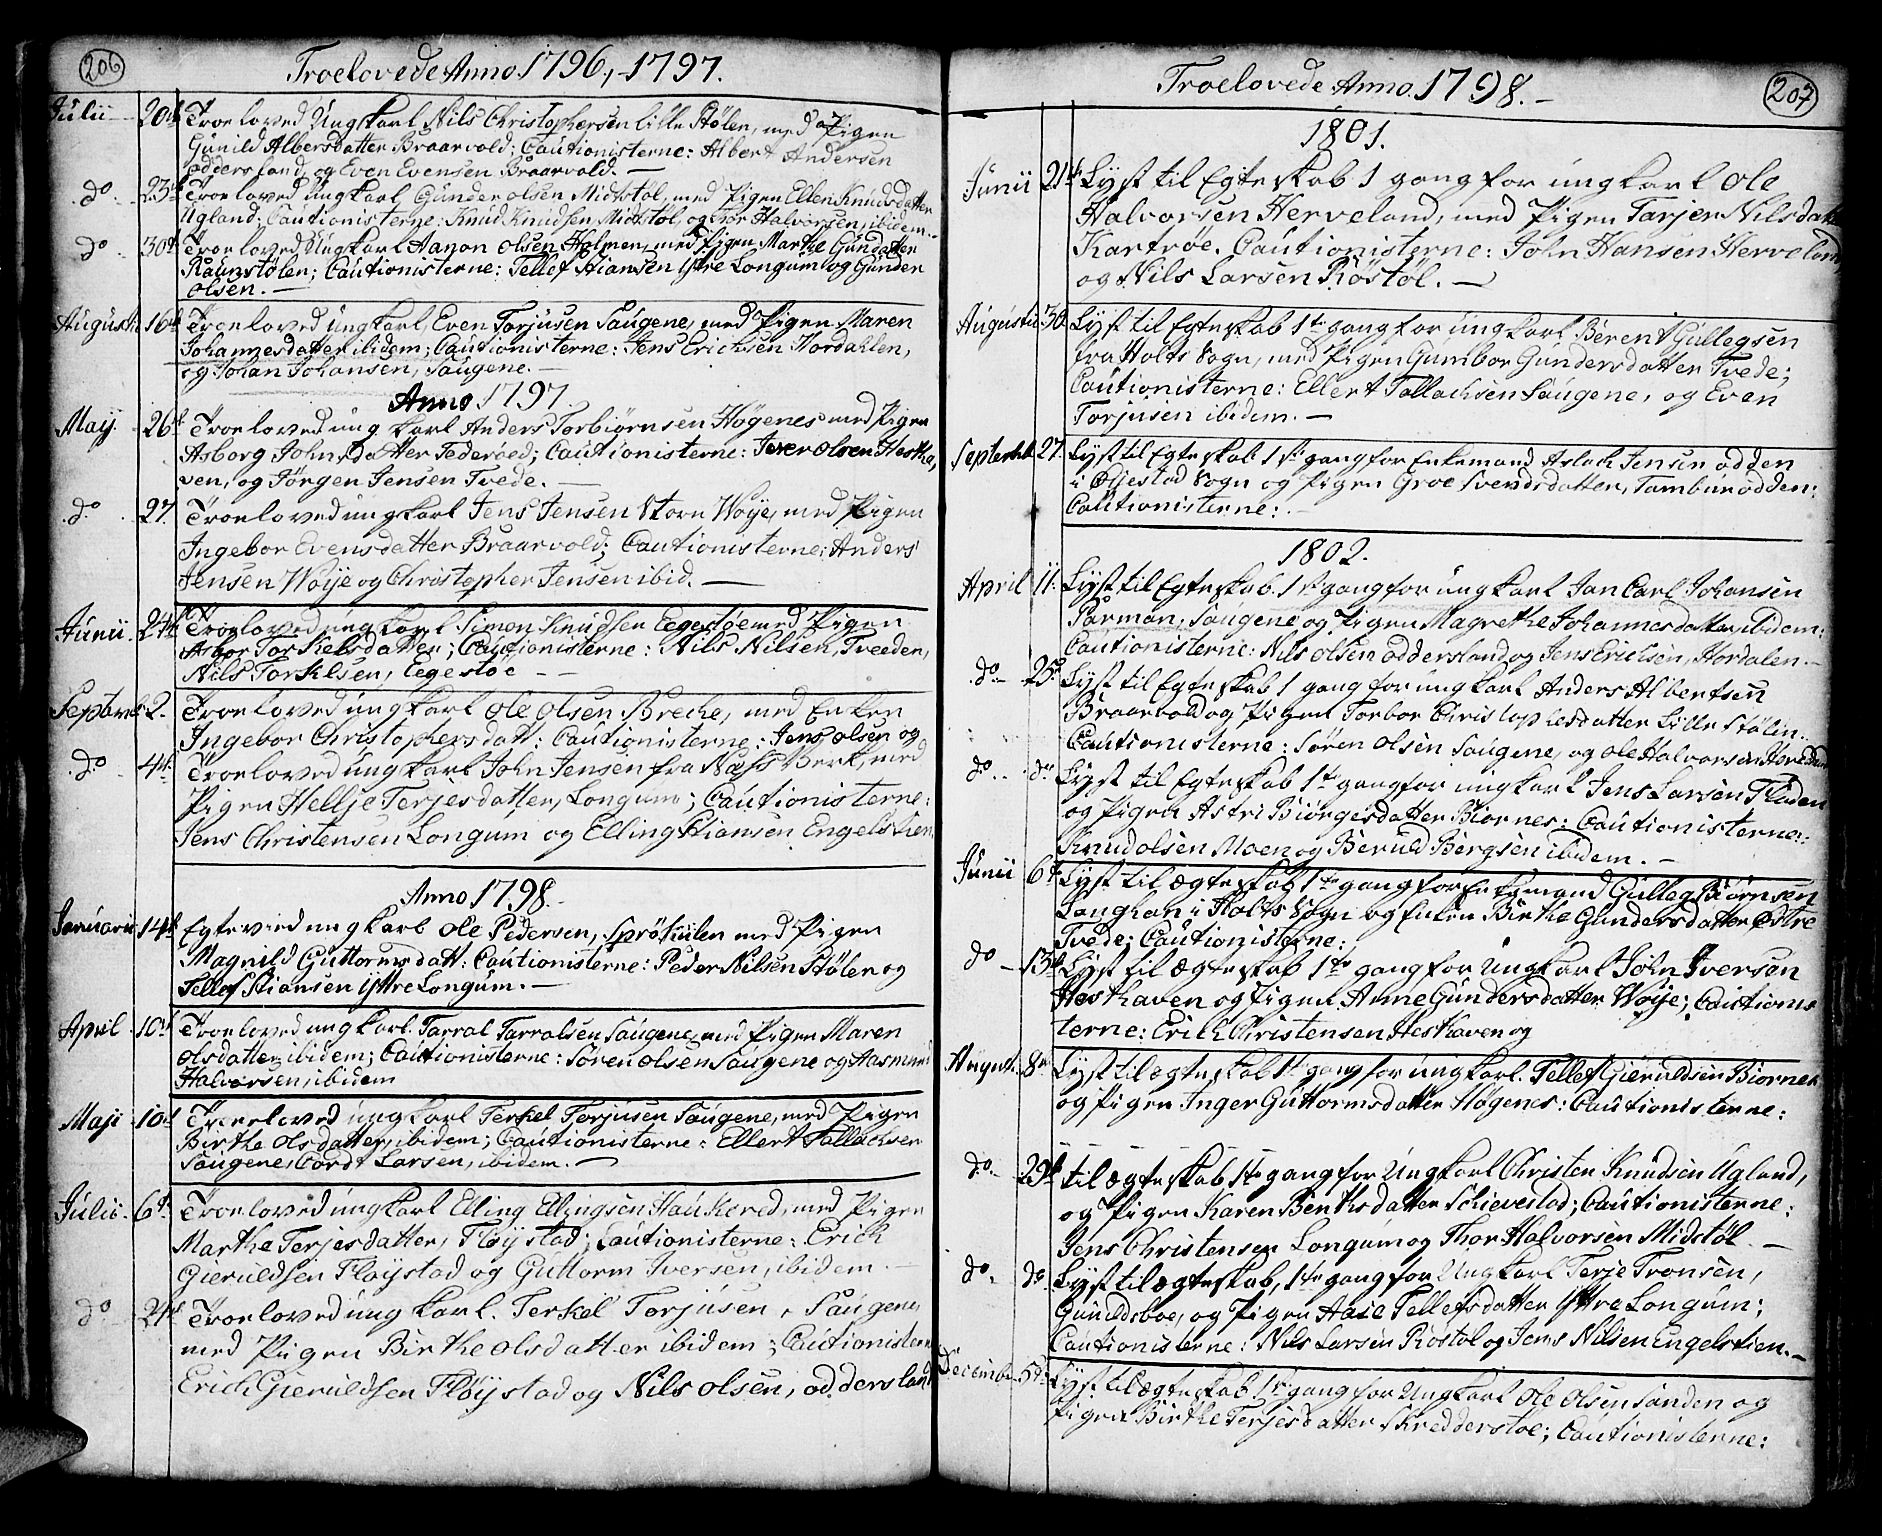 206
Troelovede Anno 1796,-1797.
Julii 20de Troeloved Ungkarl Nils Christophersen Lille Stølen, med Pigen
Gunild Albersdatter Braarvold; Cautionisterne: Albert Andersen
oddersland, og Even Evensen Braarvold. —
do 23de Troeloved Ungkarl Gunder olsen Midtstøl, med Pigen Ellen Knudsdatter
Ugland; Cautionisterne: Knud Knudsen Midtstøl og Tor Halvorsen, ibidem.
do 30te Troeloved Ungkarl Aanon olsen Holmen, med Pigen Marthe Gunder
Raunstølen; Cautionisterne: Tellef Stiansen Yttre Longum og Gunder
olsen. —
Augusti 16de Troeloved ungkarl, Even Torjusen Saugene, med Pigen Maren
Johannesdatter ibidem; Cautionisterne: Jens Erichsen Hordahlen,
og Johan Johansen, Saugene. —
Anno 1797.
Maij 26te Troeloved ung karl Anders Torbiørnsen Høgenes med Pigen
Asborg Johnsdatter Tederoed; Cautionisterne: Iver olsen Hestha,
ven, og Jørgen Jensen Tvede. —
do 27 Troeloved ungkarl Jens Jensen Store Woije, med Pigen
Ingebor Evensdatter Braarvold; Cautionisterne: Anders
Jensen Woije og Christopher Jensen ibid. —
Junii 24de Troeloved ungkarl Simon Knudsen Eegestøe med Pigen
Asbor Torkelsdatter; Cautionisterne: Nils Nilsen, Tveeden,
Nils Torkelsen, Eegestøe — —
Septbr 2. Troeloved ungkarl ole olsen Breche, med Enken
Ingebor Christophersdatt: Cautionisterne: Jens olsen og
do 4de Troeloved ungkarl John Jensen fra Næss Verk, med
Pigen Hellje Terjesdatter, Longum; Cautionisterne:
Jens Christensen Longum og Elling Stiansen Engelstien
Anno 1798.
Januarii 14de Egtevied ungkarl ole Pedersen, Sprøkiilen med Pigen
Magnild Guttormsdatt: Cautionisterne: Peder Nilsen Stølen og
Tellef Stiansen Yttre Longum. —
April 10de Troeloved ungkarl. Tarral Tarralsen Saugene, med Pigen Maren
olsdatter, ibidem; Cautionisterne: Søren olsen Saugene og Aasmund
Halvorsen, ibidem
Maji 10de Troeloved ungkarl Terkel Torjusen Saugene, med Pigen
Birthe olsdatter, ibidem; Cautionisterne: Ellert Tallachsen
Saugene, Cordt Larsen, ibidem. —
Julii 6te Troeloved ungkarl Elling Ellingsen Haukered, med Pigen
Marthe Terjesdatter, Fløjstad; Cautionisterne: Erick
Gieruldsen Fløystad og Guttorm Iversen, ibidem. —
do 24de Troeloved ung karl. Terkel Torjusen, Saugene,
med Pigen Birthe olsdatter ibidem; Cautionistern
Erich Gieruldsen Fløystad og Nils olsen, oddersland
207
Troelovede Anno. 1798. —
1801.
Junii 21de Lyst til Egteskab 1 gang for ungkarl ole
Halvorsen Herveland, med Pigen Tarjer Nilsdatter
Kartrøe. Cautionisterne: John Hansen Herveland
og Nils Larsen Røstøl. —
Augusti 30 Lyst til Egteskab 1te gang for ungkarl Berent Gullegsen
fra Holts Sogn, med Pigen Gumbor Gundersdatter Tvede;
Cautionisterne: Ellert Tallachsen Saugene, og Even
Torjusen ibidem. —
Septembr 27. Lyst til Egteskab 1ste gang for Enkemand Aslach Jensen odden
i Øijestad Sogn og Pigen Groe Svendsdatter, Tambur odden:
Cautionisterne: —
1802.
April 11. Lyst til Egteskab. 1ste gang for ungkarl Jan Carl Johansen
Parman, Saugene og Pigen Magrethe Johannesdatter ibidem:
Cautionisterne: Nils olsen oddersland og Jens Erichsen, Hordalen. —
do 25de Lyst til Egteskab 1 gang for ungkarl Anders Albertsen
Braarvold og Pigen Torbor Christophersdatter Lille Stølen.
Cautionisterne: Søren olsen Saugene, og ole Halvorsen
do do Lyst til Egteskab 1te gang for ungkarl Jens Larsen Fløden
og Pigen Astri Biørgesdatter Biørnes: Cautionisterne:
Knud olsen Moen og Beruld Bergsen ibidem. —
Junii 6te Lyst til ægteskab 1te gang for Enkemand Gulleg Biørnsen
Langhan i Holts Sogn og Enken Birthe Gundersdatter Østre
Tvede; Cautionisterne:
do 13de Lyst til ægteskab 1te gang for ungkarl John Iversen
Hesthaven og Pigen Anne Gundersdatter Woije; Cautionis
terne: Erick Christensen Hesthaven og
August. 8de Lyst til ægteskab 1te gang for ungkarl. Tellef Gieruldsen Biørnes
og Pigen Inger Guttormsdatter Høgenes: Cautionisterne:
do 29de til ægteskab 1te gang for Ungkarl Christen Knudsen Ugland,
og Pigen Karen Bentsdatter Schievestad; Cautionisterne:
Jens Christensen Longum og Thor Halvorsen Midstøl —
do do Lyst til ægteskab, 1te gang for Ungkarl Terje Tronsen,
Gunildsboe, og Pigen Aase Tellefsdatter Yttre Longum;
Cautionisterne: Nils Larsen Røstøl og Jens Nilsen Engelstien. —
Decembr 5te Lyst til ægteskab 1ste gang for Ungkarl ole olsen Sanden og
Pigen Birthe Terjesdatter Skredderstoe; Cautionisterne: